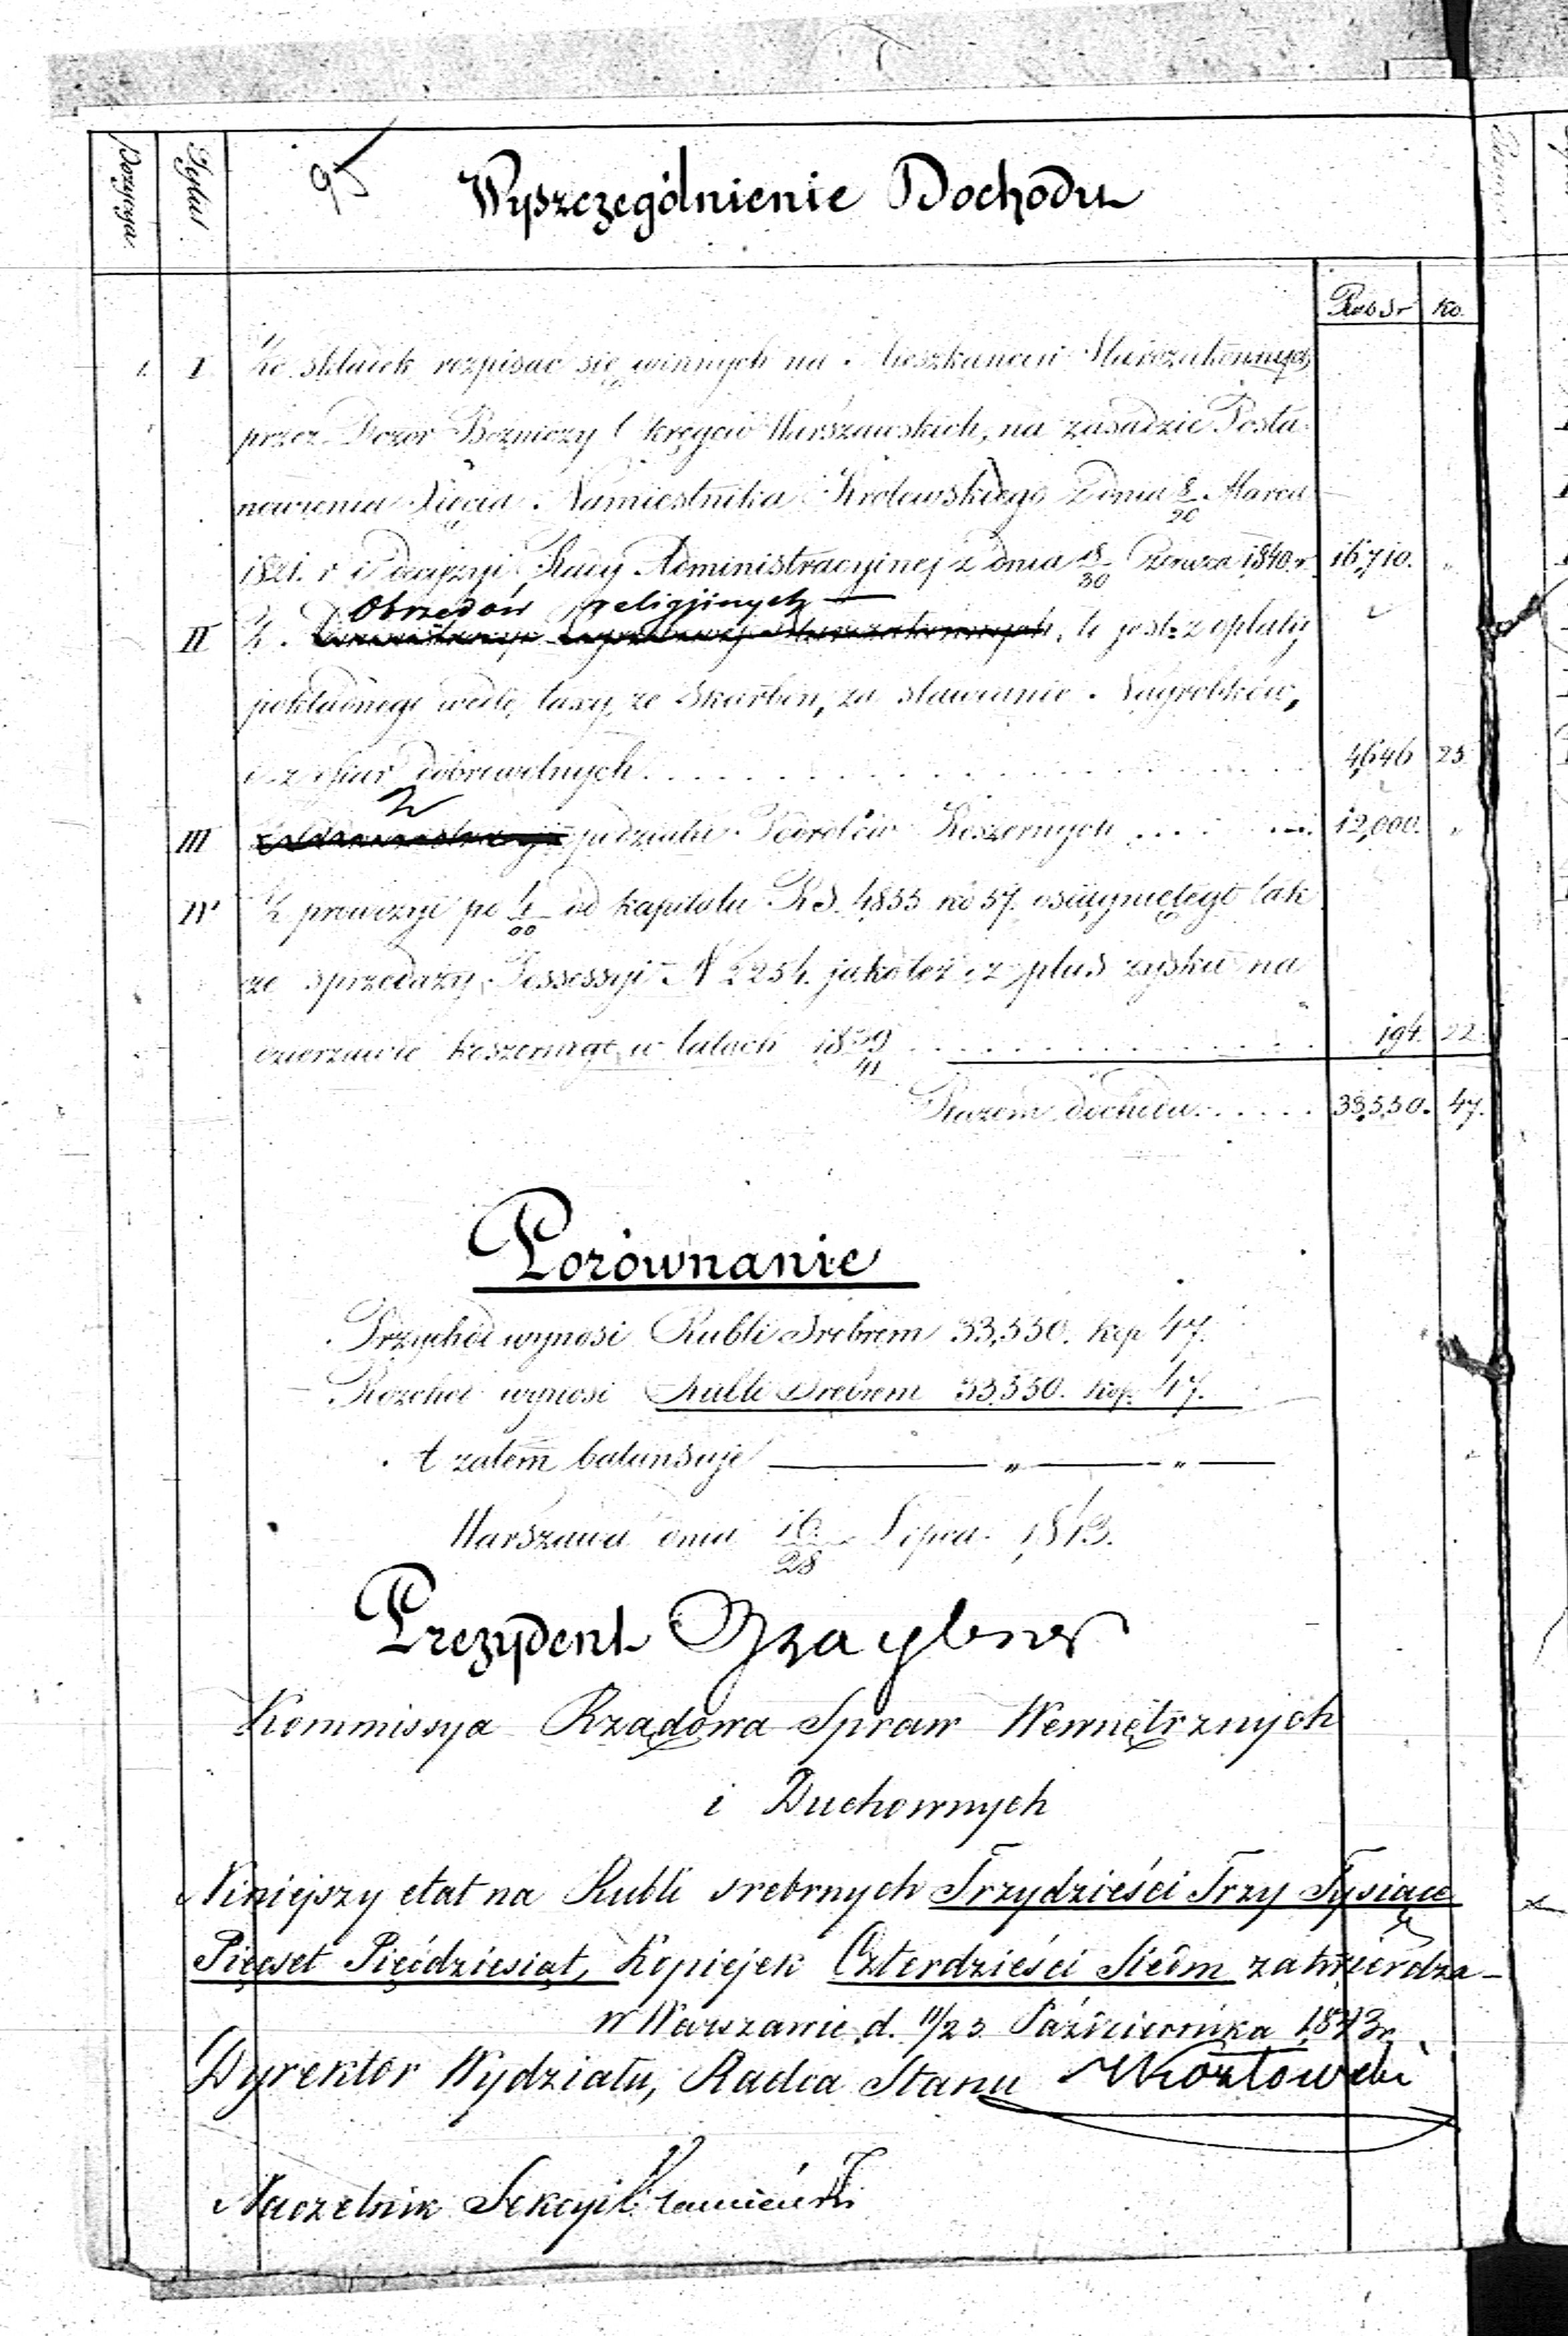 Pozycya
Tytuł
Wyszczególnienie Dochodu
Rub Sr Ko.
1. I Ze składek rozpisać się winnych na Mieszkańców Starozakonnych
przez Dozór Bożniczy Okręgów Warszawskich, na zasadzie Posta-
nowienia Xięcia Namiestnika Królewskiego z dnia 8/20 Marca
1821. r i decyzyi Rady Administracyjnej z dnia 18/30 Czerwca 1840. r. 16,710. "
Obrzędów religijnych
II Z to jest: z opłaty
pokładnego wedle taxy, ze Skarbon, za stawianie Nagrobków,
i z ofiar dobrowolnych 4,646 25
Z
III podziału Podrobów Koszernych 12,000. "
IV Z prowizyi po 4/00 od kapitału RS. 4855 ko 57. osiągniętego tak
ze sprzedaży Possessyi N 2254. jako też i z plus zysku na
dzierżawie koszernego w latach 1839/41 194. 22.
Razem dochodu 33,550. 47.
Porównanie
Przychód wynosi Rubli Srebrem 33,550. kop 47.
Rozchód wynosi Rubli Srebrem 33,550. kop. 47.
A zatem balansuje " "
Warszawa dnia 16/28 Lipca 1843.
Prezydent Graybner
Kommissya Rządowa Spraw Wewnętrznych
i Duchownych
Niniejszy etat na Rubli srebrnych Trzydzieści Trzy Tysiące
Pięćset Pięćdziesiąt, Kopiejek Czterdzieści Siedm zatwierdza -
w Warszawie d. 11/23 Października 1843 r.
Dyrektor Wydziału, Radca Stanu Kozłowski
Naczelnik Sekcyi Kamieński